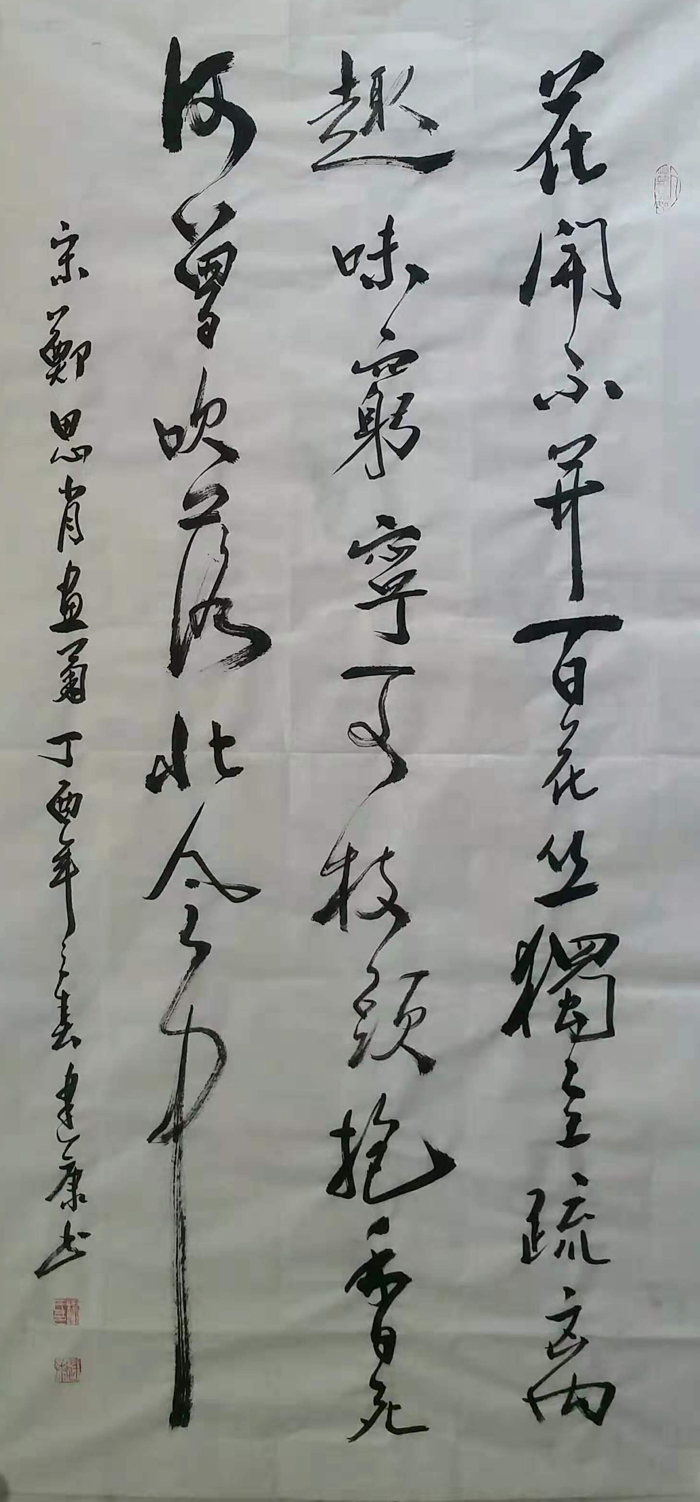 花開不并百花丛獨立疏离
趣味窮寧可枝頭抱香死
何曾吹落北風中
宋鄭思肖畫菊丁酉年之春建康书